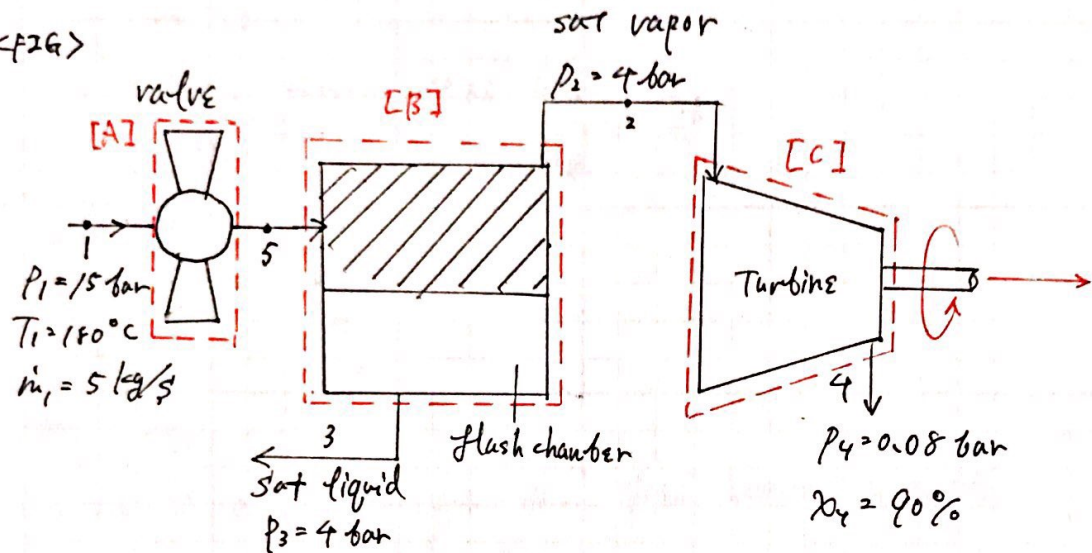 <FIG>
sat vapor
P₂ = 4 bar
valve
[A]
[B]
2
[C]
1
5
P₁ = 15 bar
T₁ = 180°C
ṁ₁ = 5 kg/s
Turbine
4
3
flash chamber
sat liquid
P₃ = 4 bar
P₄ = 0.08 bar
x₄ = 90%